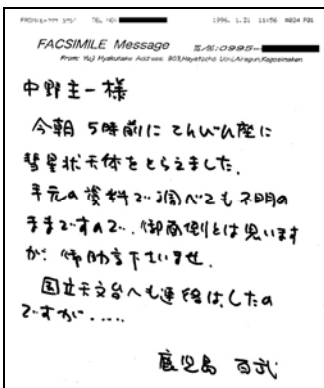 TEL NO. 1996. 1.31 11:56 P01
FACSIMILE Message 電話:0995-
From: Yuji Hyakutake Address: 903,Hayatocho Uchi,Airagun,Kagosimaken
中野主一様
今朝 5時前に てんびん座に
彗星状天体をとらえました.
手元の資料で調べても不明の
ままですので. 御面倒とは思います
が. 御助言下さいませ.
国立天文台へも連絡は,したの
ですが.....
鹿児島 百武